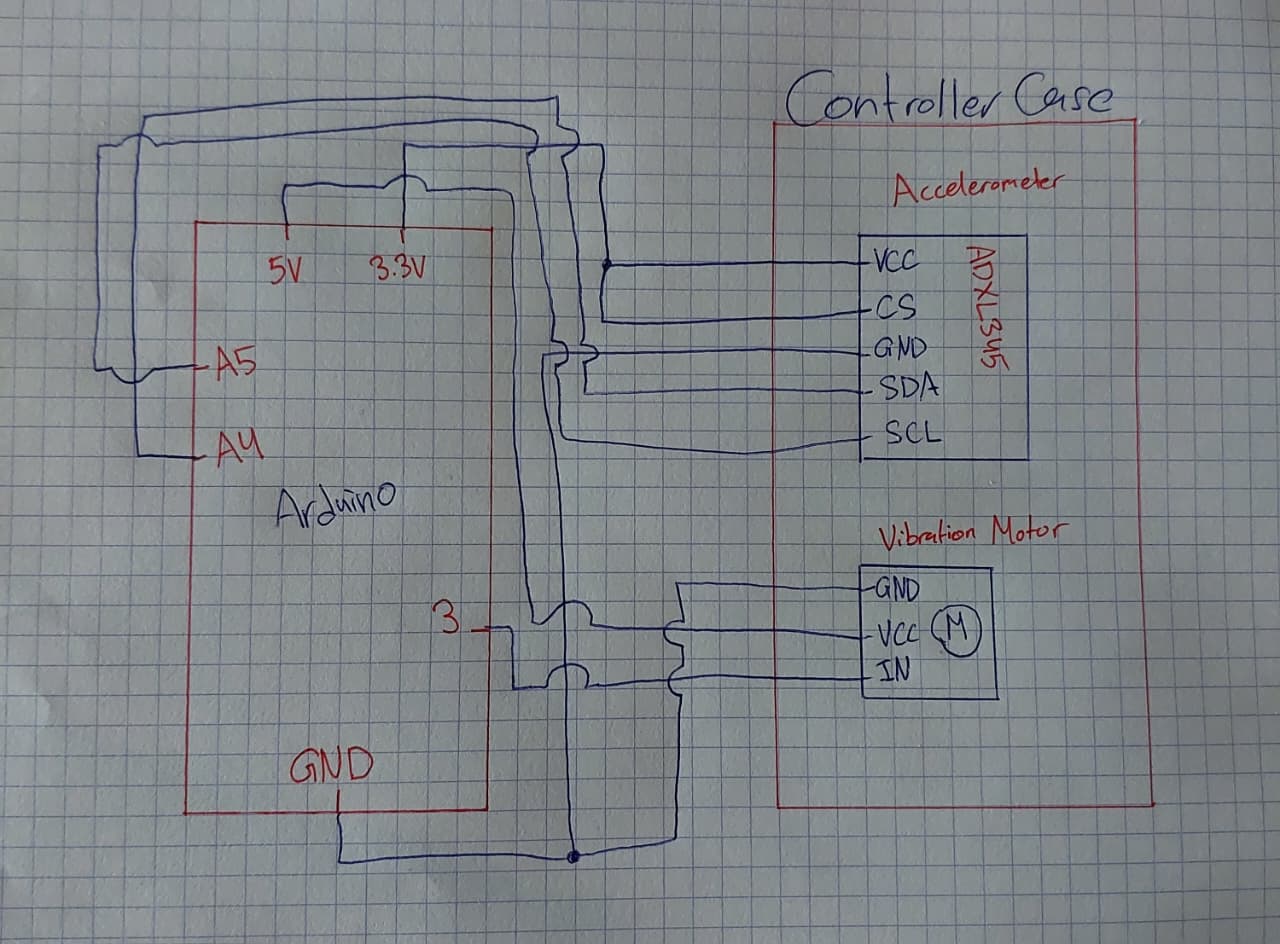 Controller Case
Accelerometer
5V
3.3V
VCC
CS
GND
SDA
SCL
ADXL345
A5
A4
Arduino
Vibration Motor
GND
VCC
IN
M
3
GND